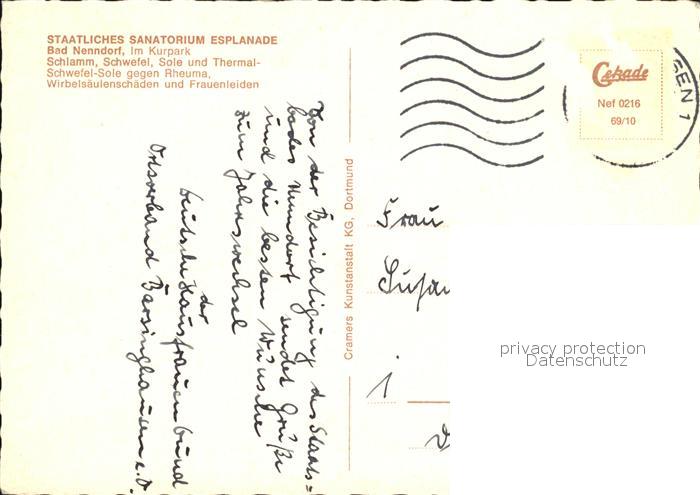 STAATLICHES SANATORIUM ESPLANADE
Bad Nenndorf, Im Kurpark
Schlamm, Schwefel, Sole und Thermal-
Schwefel-Sole gegen Rheuma,
Wirbelsäulenschäden und Frauenleiden
Von der Besichtigung des Staats=
bades Nenndorf sendet Grüße
und die besten Wünsche
zum Jahreswechsel
der
Deutsche Hausfrauenbund
Ortsverband Barsinghausen e.V.
Cramers Kunstanstalt KG, Dortmund
EN 1
Cekade
Nef 0216
69/10
Frau
privacy protection
Datenschutz